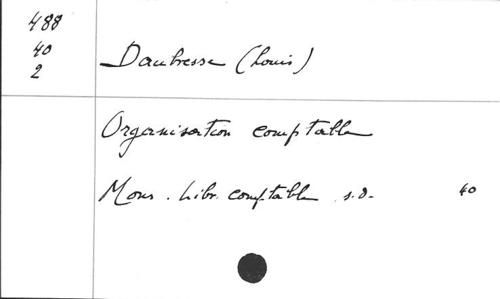 488
40
2
Daubresse (Louis)
Organisation comptable
Mons. Libr. comptable s.d. 40